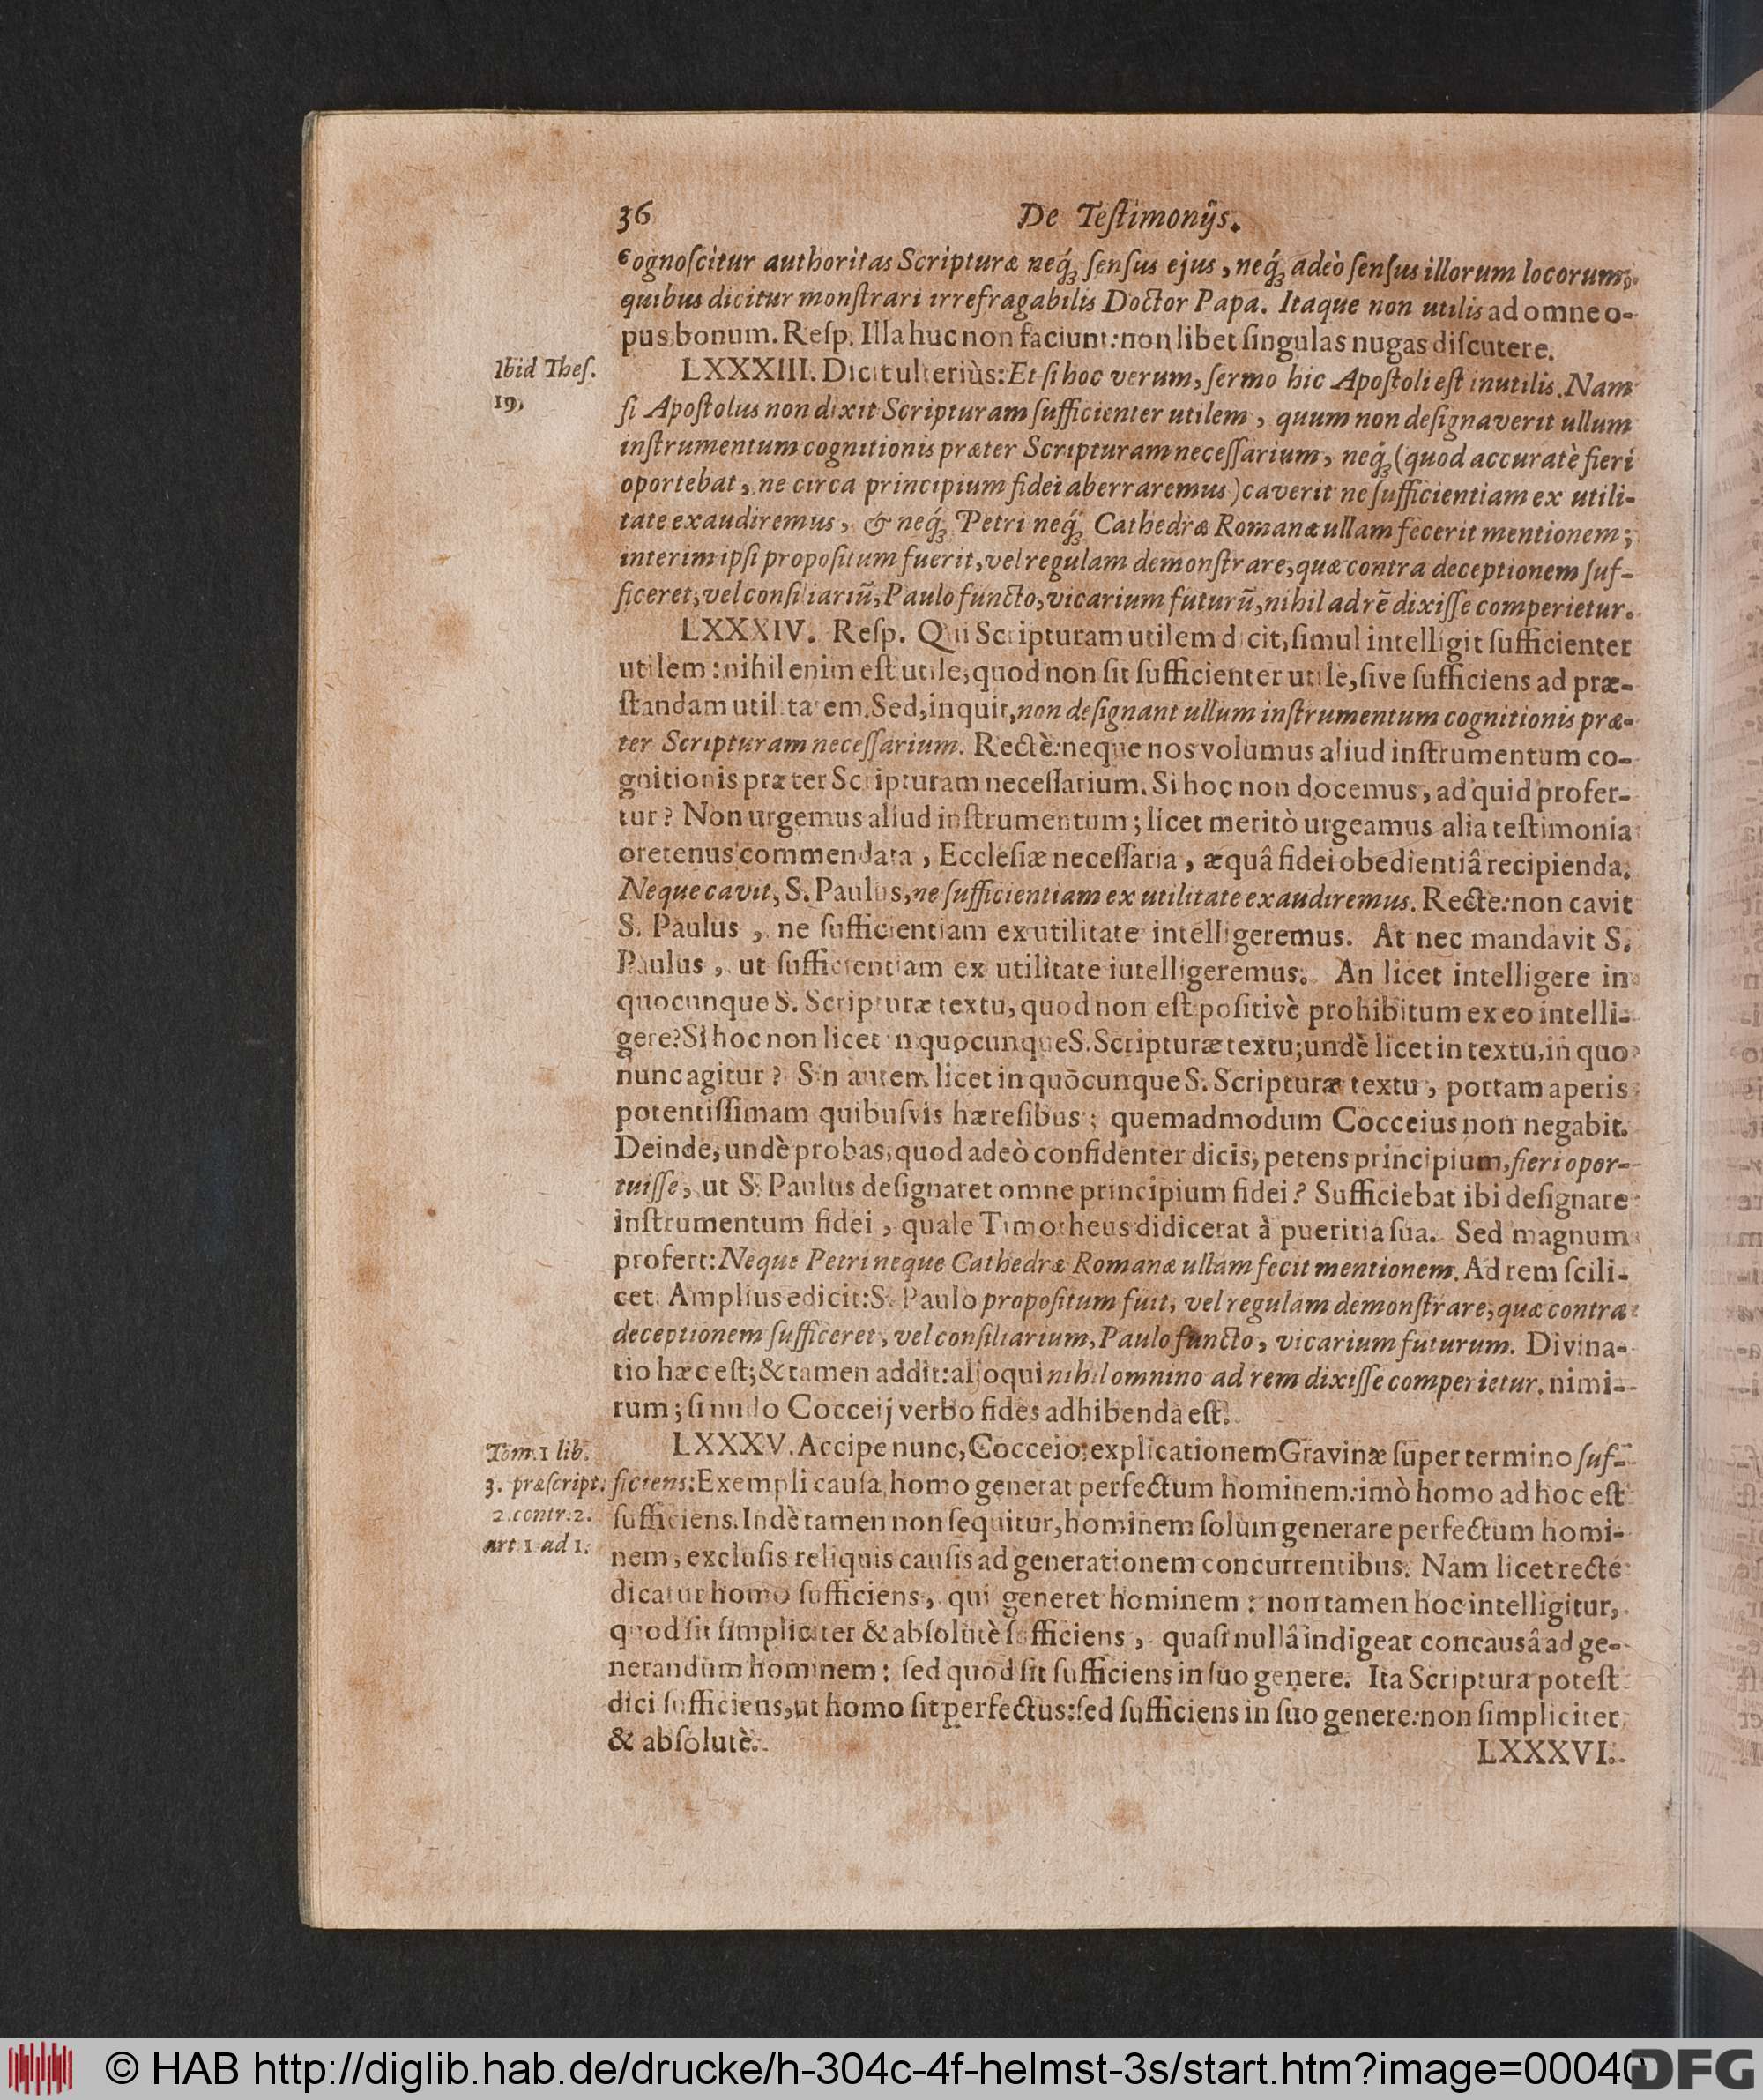 36 De Teſtimonijs.
cognoſcitur authoritas Scripturæ neq́ꝫ ſenſus ejus, neq́ꝫ adeò ſenſus illorum locorum,
quibus dicitur monſtrari irrefragabilis Doctor Papa. Itaque non utilis ad omne o-
pus bonum. Reſp. Illa huc non faciunt: non libet ſingulas nugas diſcutere.
Ibid Theſ.
19.
LXXXIII. Dicit ulteriùs: Et ſi hoc verum, ſermo hic Apoſtoli eſt inutilis. Nam
ſi Apoſtolus non dixit Scripturam ſufficienter utilem, quum non deſignaverit ullum
inſtrumentum cognitionis præter Scripturam neceſſarium, neq́ꝫ (quod accuratè fieri
oportebat, ne circa principium fidei aberraremus) caverit ne ſufficientiam ex utili-
tate exaudiremus, & neq́ꝫ Petri neq́ꝫ Cathedræ Romanæ ullam fecerit mentionem;
interim ipſi propoſitum fuerit, vel regulam demonſtrare, quæ contra deceptionem ſuf-
ficeret, vel conſiliariũ, Paulo functo, vicarium futurũ, nihil ad rẽ dixiſſe comperietur.
LXXXIV. Reſp. Qui Scripturam utilem dicit, ſimul intelligit ſufficienter
utilem: nihil enim eſt utile, quod non ſit ſufficienter utile, ſive ſufficiens ad præ-
ſtandam utilitatem. Sed, inquit, non deſignant ullum inſtrumentum cognitionis præ-
ter Scripturam neceſſarium. Rectè: neque nos volumus aliud inſtrumentum co-
gnitionis præter Scripturam neceſſarium. Si hoc non docemus, ad quid profer-
tur? Non urgemus aliud inſtrumentum; licet meritò urgeamus alia teſtimonia
oretenus commendata, Eccleſiæ neceſſaria, æquâ fidei obedientiâ recipienda.
Neque cavit, S. Paulus, ne ſufficientiam ex utilitate exaudiremus. Recte: non cavit
S. Paulus, ne ſufficientiam ex utilitate intelligeremus. At nec mandavit S.
Paulus, ut ſufficientiam ex utilitate iutelligeremus. An licet intelligere in
quocunque S. Scripturæ textu, quod non eſt poſitivè prohibitum ex eo intelli-
gere? Si hoc non licet in quocunque S. Scripturæ textu; undè licet in textu, in quo
nunc agitur? Sin autem licet in quōcunque S. Scripturæ textu, portam aperis
potentiſſimam quibuſvis hæreſibus; quemadmodum Cocceius non negabit.
Deinde, undè probas, quod adeò confidenter dicis, petens principium, fieri opor-
tuiſſe, ut S. Paulus deſignaret omne principium fidei? Sufficiebat ibi deſignare
inſtrumentum fidei, quale Timotheus didicerat à pueritia ſua. Sed magnum
profert: Neque Petri neque Cathedræ Romanæ ullam fecit mentionem. Ad rem ſcili-
cet. Amplius edicit: S. Paulo propoſitum fuit, vel regulam demonſtrare, quæ contra
deceptionem ſufficeret, vel conſiliarium, Paulo functo, vicarium futurum. Divina-
tio hæc eſt; & tamen addit: alioqui nihil omnino ad rem dixiſſe comperietur. nimi-
rum; ſi nudo Cocceij verbo fides adhibenda eſt.
Tom. 1 lib.
3. præſcript.
2. contr. 2.
art 1 ad 1.
LXXXV. Accipe nunc, Cocceio, explicationem Gravinæ ſuper termino ſuf-
ficiens: Exempli cauſa, homo generat perfectum hominem: imò homo ad hoc eſt
ſufficiens. Indè tamen non ſequitur, hominem ſolum generare perfectum homi-
nem, excluſis reliquis cauſis ad generationem concurrentibus. Nam licet recte
dicatur homo ſufficiens, qui generet hominem: non tamen hoc intelligitur,
quod ſit ſimpliciter & abſolutè ſufficiens, quaſi nullâ indigeat concausâ ad ge-
nerandum hominem: ſed quod ſit ſufficiens in ſuo genere. Ita Scriptura poteſt
dici ſufficiens, ut homo ſit perfectus: ſed ſufficiens in ſuo genere: non ſimpliciter
& abſolutè.
LXXXVI.
© HAB http://diglib.hab.de/drucke/h-304c-4f-helmst-3s/start.htm?image=00040
DFG